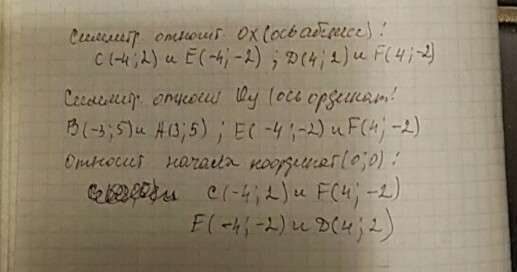 Симметр относит Ox (ось абсцисс) :
C(-4; 2) и E(-4; -2) ; D(4; 2) и F(4; -2)
Симметр относит Oy (ось ординат!
B(-3; 5) и A(3; 5) ; E(-4; -2) и F(4; -2)
Относит начала координат (0; 0) :
C(-4; 2) и F(4; -2)
E(-4; -2) и D(4; 2)